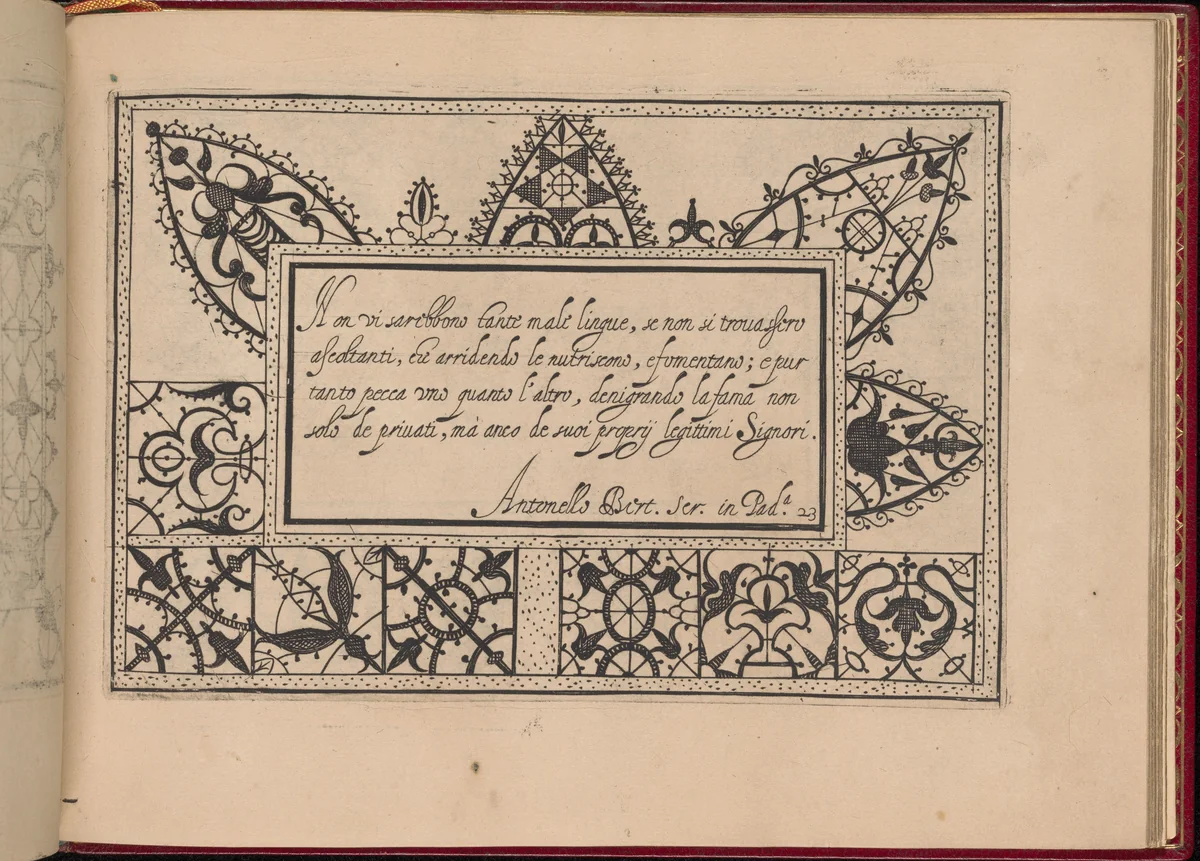 Non vi sarebbono tante male lingue, se non si trouassero
ascoltanti, ch'è arridendo le nutriscono, e fomentano; e pur
tanto pecca vno quanto l'altro, denigrando la fama non
solo de priuati, mà anco de suoi proprij legittimi Signori.
Antonello Bert. ser. in Pad.ª 23